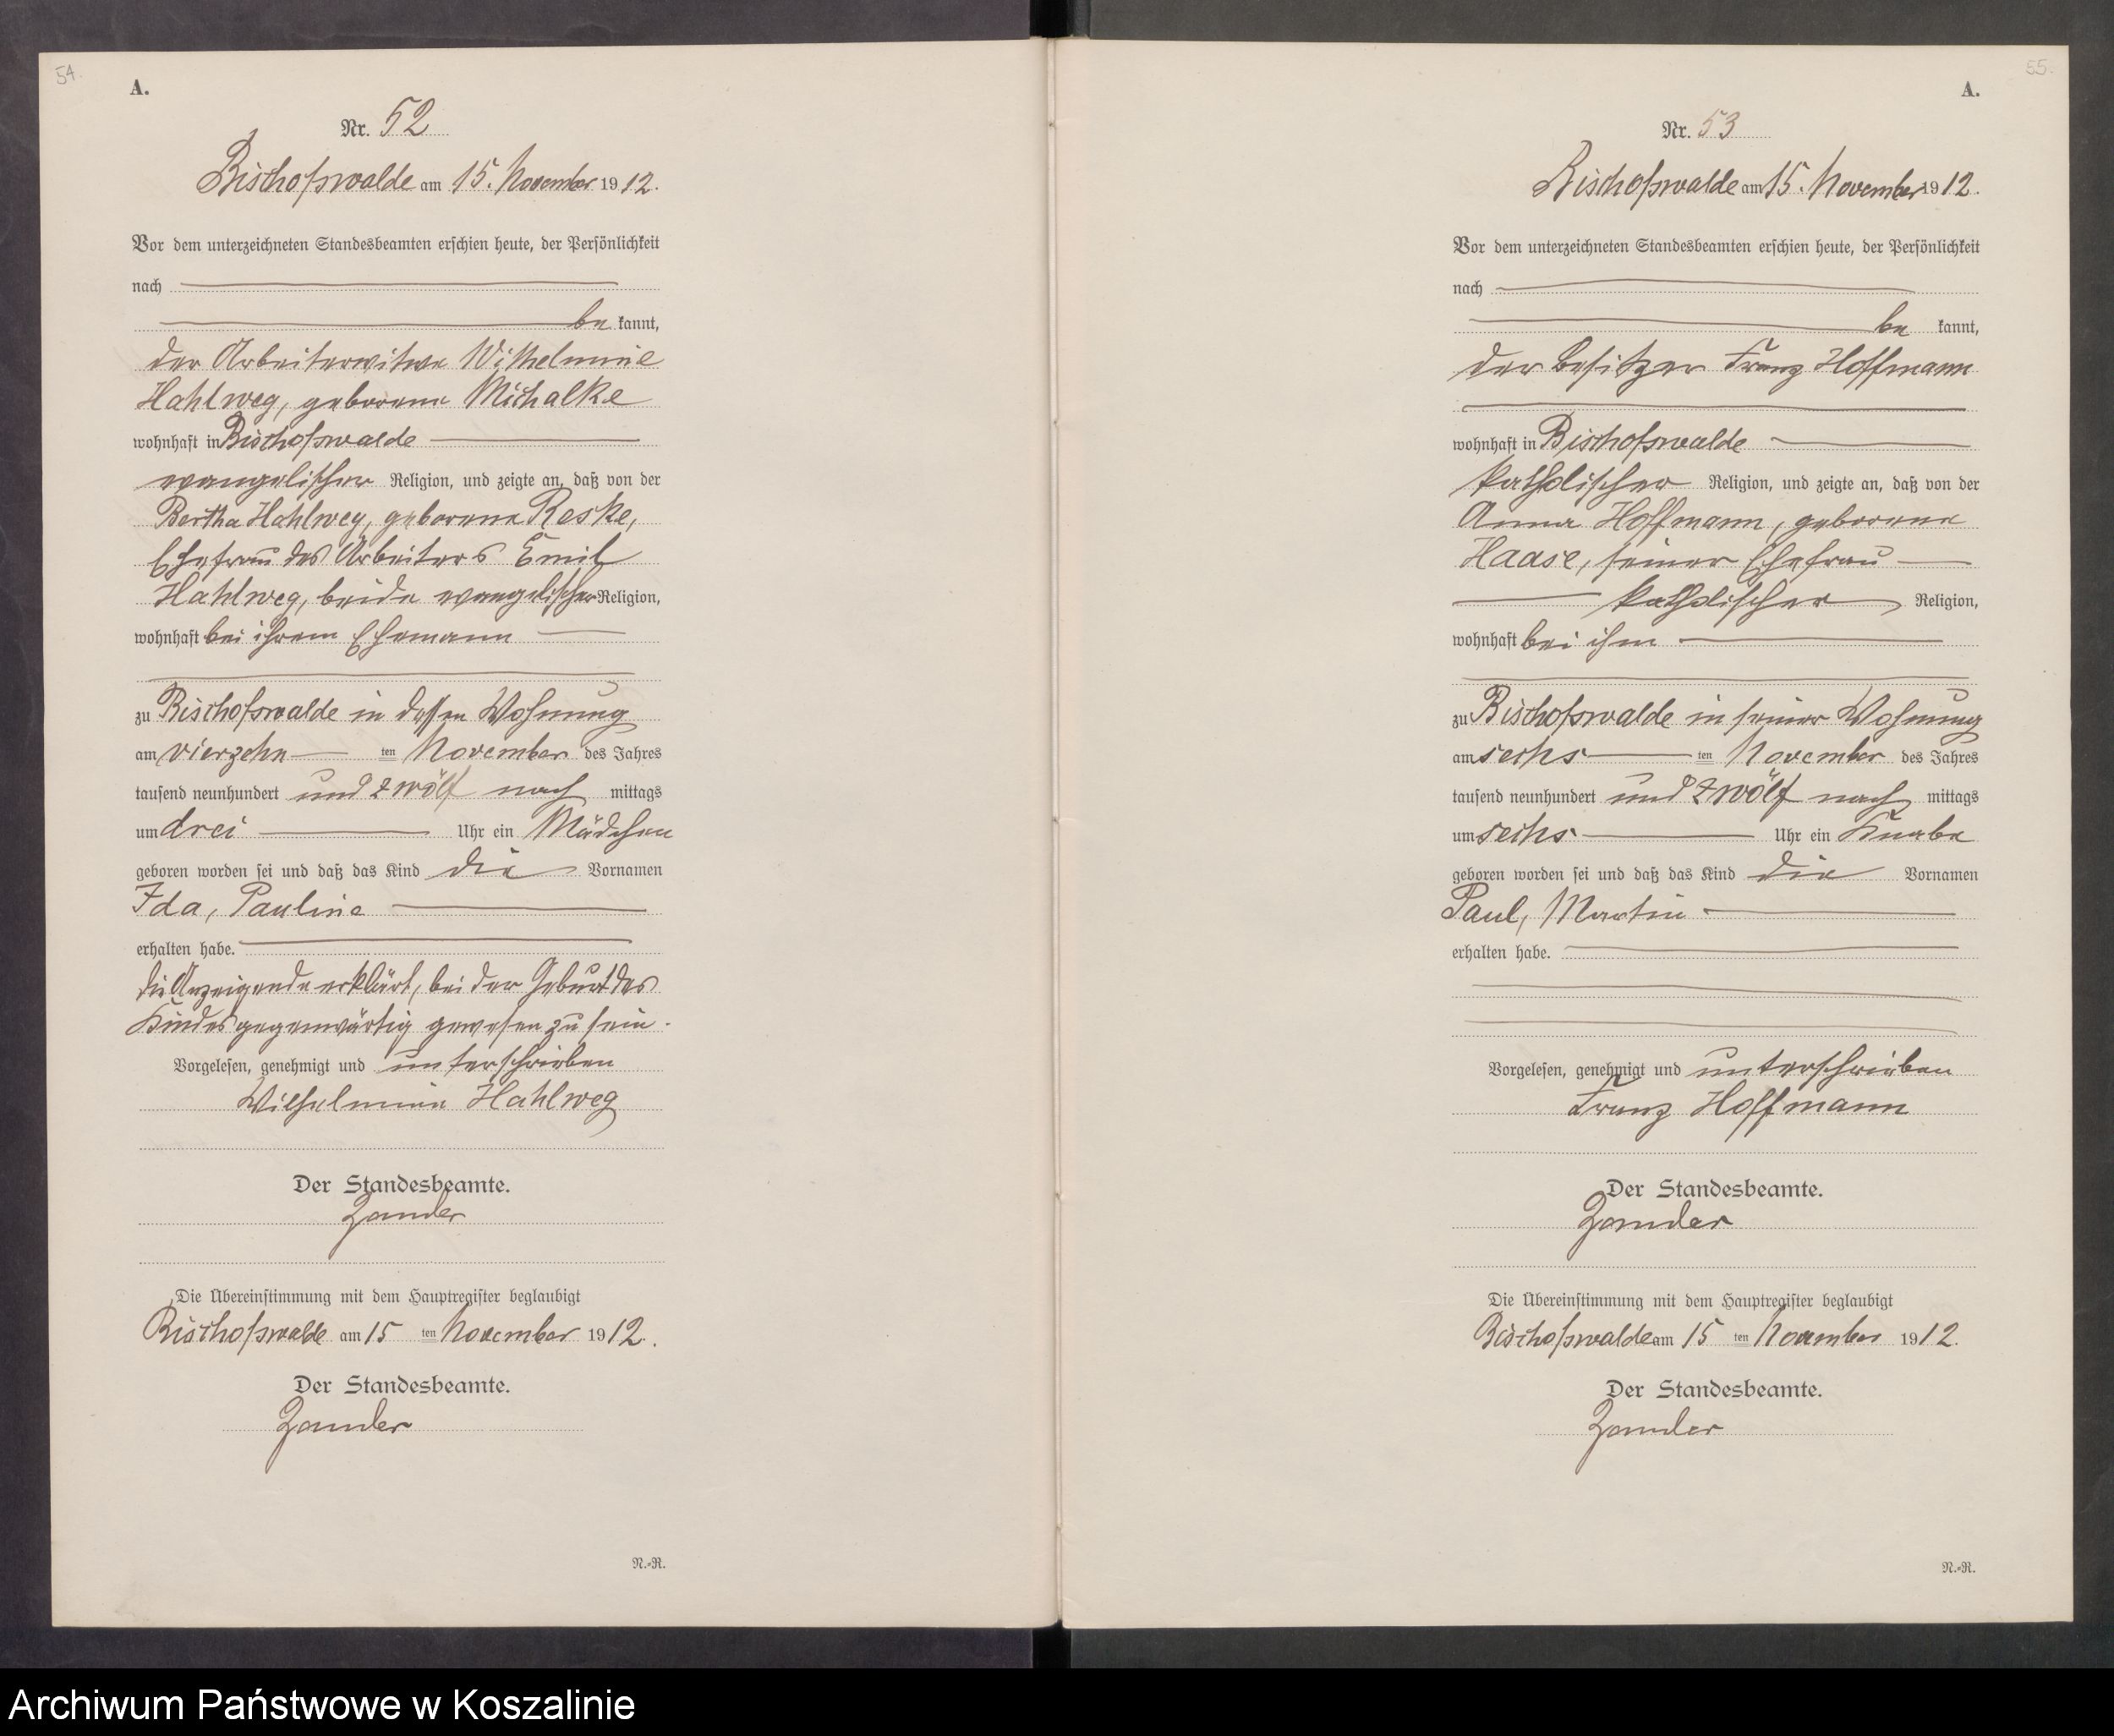 54.
A.
Nr. 52
Bischofswalde am 15. November 1912.
Vor dem unterzeichneten Standesbeamten erschien heute, der Persönlichkeit
nach
be kannt,
der Arbeiterwitwe Wilhelmine
Hahlweg, geborene Michalke
wohnhaft in Bischofswalde
evangelischer Religion, und zeigte an, daß von der
Bertha Hahlweg, geborene Reske,
Ehefrau des Arbeiters Emil
Hahlweg, beide evangelischer Religion,
wohnhaft bei ihrem Ehemann
zu Bischofswalde in dessen Wohnung
am vierzehn ten November des Jahres
tausend neunhundert und zwölf nach mittags
um drei Uhr ein Mädchen
geboren worden sei und daß das Kind die Vornamen
Ida, Pauline
erhalten habe.
die Anzeigende erklärt, bei der Geburt des
Kindes gegenwärtig gewesen zu sein.
Vorgelesen, genehmigt und unterschrieben
Wilhelmine Hahlweg
Der Standesbeamte.
Zander
Die Übereinstimmung mit dem Hauptregister beglaubigt
Bischofswalde am 15 ten November 1912.
Der Standesbeamte.
Zander
N.=R.
55.
A.
Nr. 53
Bischofswalde am 15. November 1912.
Vor dem unterzeichneten Standesbeamten erschien heute, der Persönlichkeit
nach
be kannt,
der Besitzer Franz Hoffmann
wohnhaft in Bischofswalde
katholischer Religion, und zeigte an, daß von der
Anna Hoffmann, geborene
Haase, seiner Ehefrau
katholischer Religion,
wohnhaft bei ihm
zu Bischofswalde in seiner Wohnung
am sechs ten November des Jahres
tausend neunhundert und zwölf nach mittags
um sechs Uhr ein Knabe
geboren worden sei und daß das Kind die Vornamen
Paul, Martin
erhalten habe.
Vorgelesen, genehmigt und unterschrieben
Franz Hoffmann
Der Standesbeamte.
Zander
Die Übereinstimmung mit dem Hauptregister beglaubigt
Bischofswalde am 15 ten November 1912.
Der Standesbeamte.
Zander
N.=R.
Archiwum Państwowe w Koszalinie